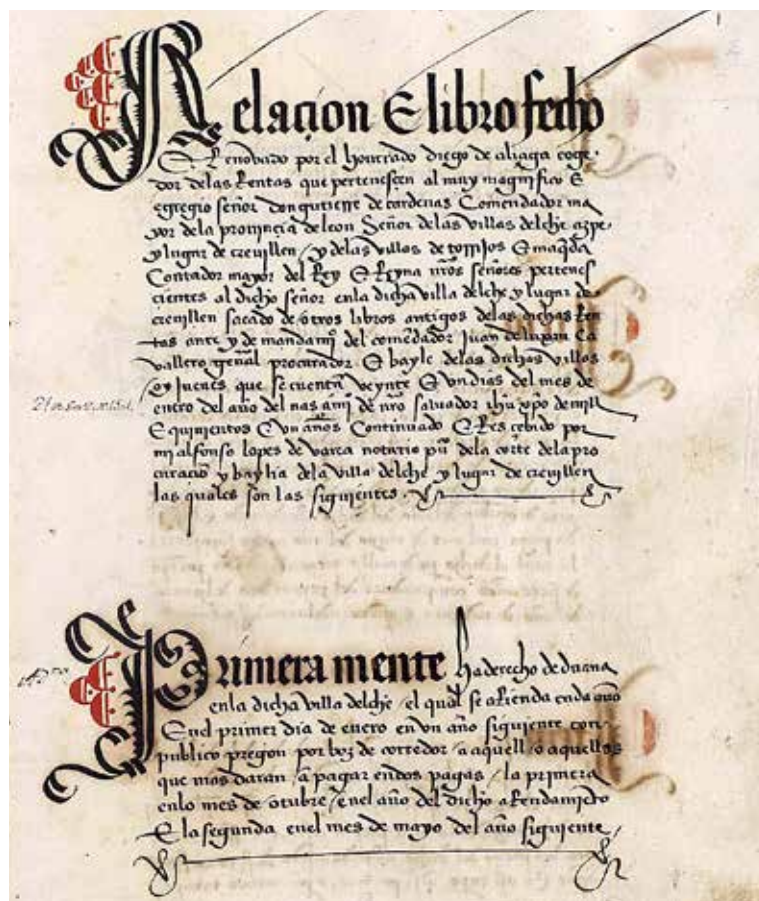 Relaçion E libro fecho
E Renovado por el honrrado diego de aliaga coge-
dor delas Rentas que pertenesçen al muy magnifico E
egregio señor don gutierre de cardenas Comendador ma
yor dela provinçia de leon Señor delas villas delche azpe
y lugar de crevillen / y delas villas de torrijos E maqda
Contador mayor del Rey E Reyna nros señores pertenes
çientes al dicho señor enla dicha villa delche y lugar de
crevillen sacado de otros libros antigos delas dichas Ren
tas ante y de mandamio del comedador Juan de Ca
vallero general procurador E bayle delas dichas villas
oy Jueues que se cuentan veynte E un dias del mes de
enero del año del nasçimi de nro salvador ihu xpo de mill
E quinientos E un años Continuado E Resçebido por
mi alfonso lopes de varea notario pu dela corte dela pro
curaçio y baylia dela villa delche y lugar de crevillen
las quales son las siguientes
Primera mente ha derecho de duana
enla dicha villa delche / el qual se aRienda cada año
Enel primer dia de enero en un año siguiente con
publico pregon por boz de corredor / a aquell o aquellos
que mas daran / a pagar endos pagas / la primera
enlo mes de otubre / enel año del dicho aRendamieto
E la segunda enel mes de mayo del año siguiente /